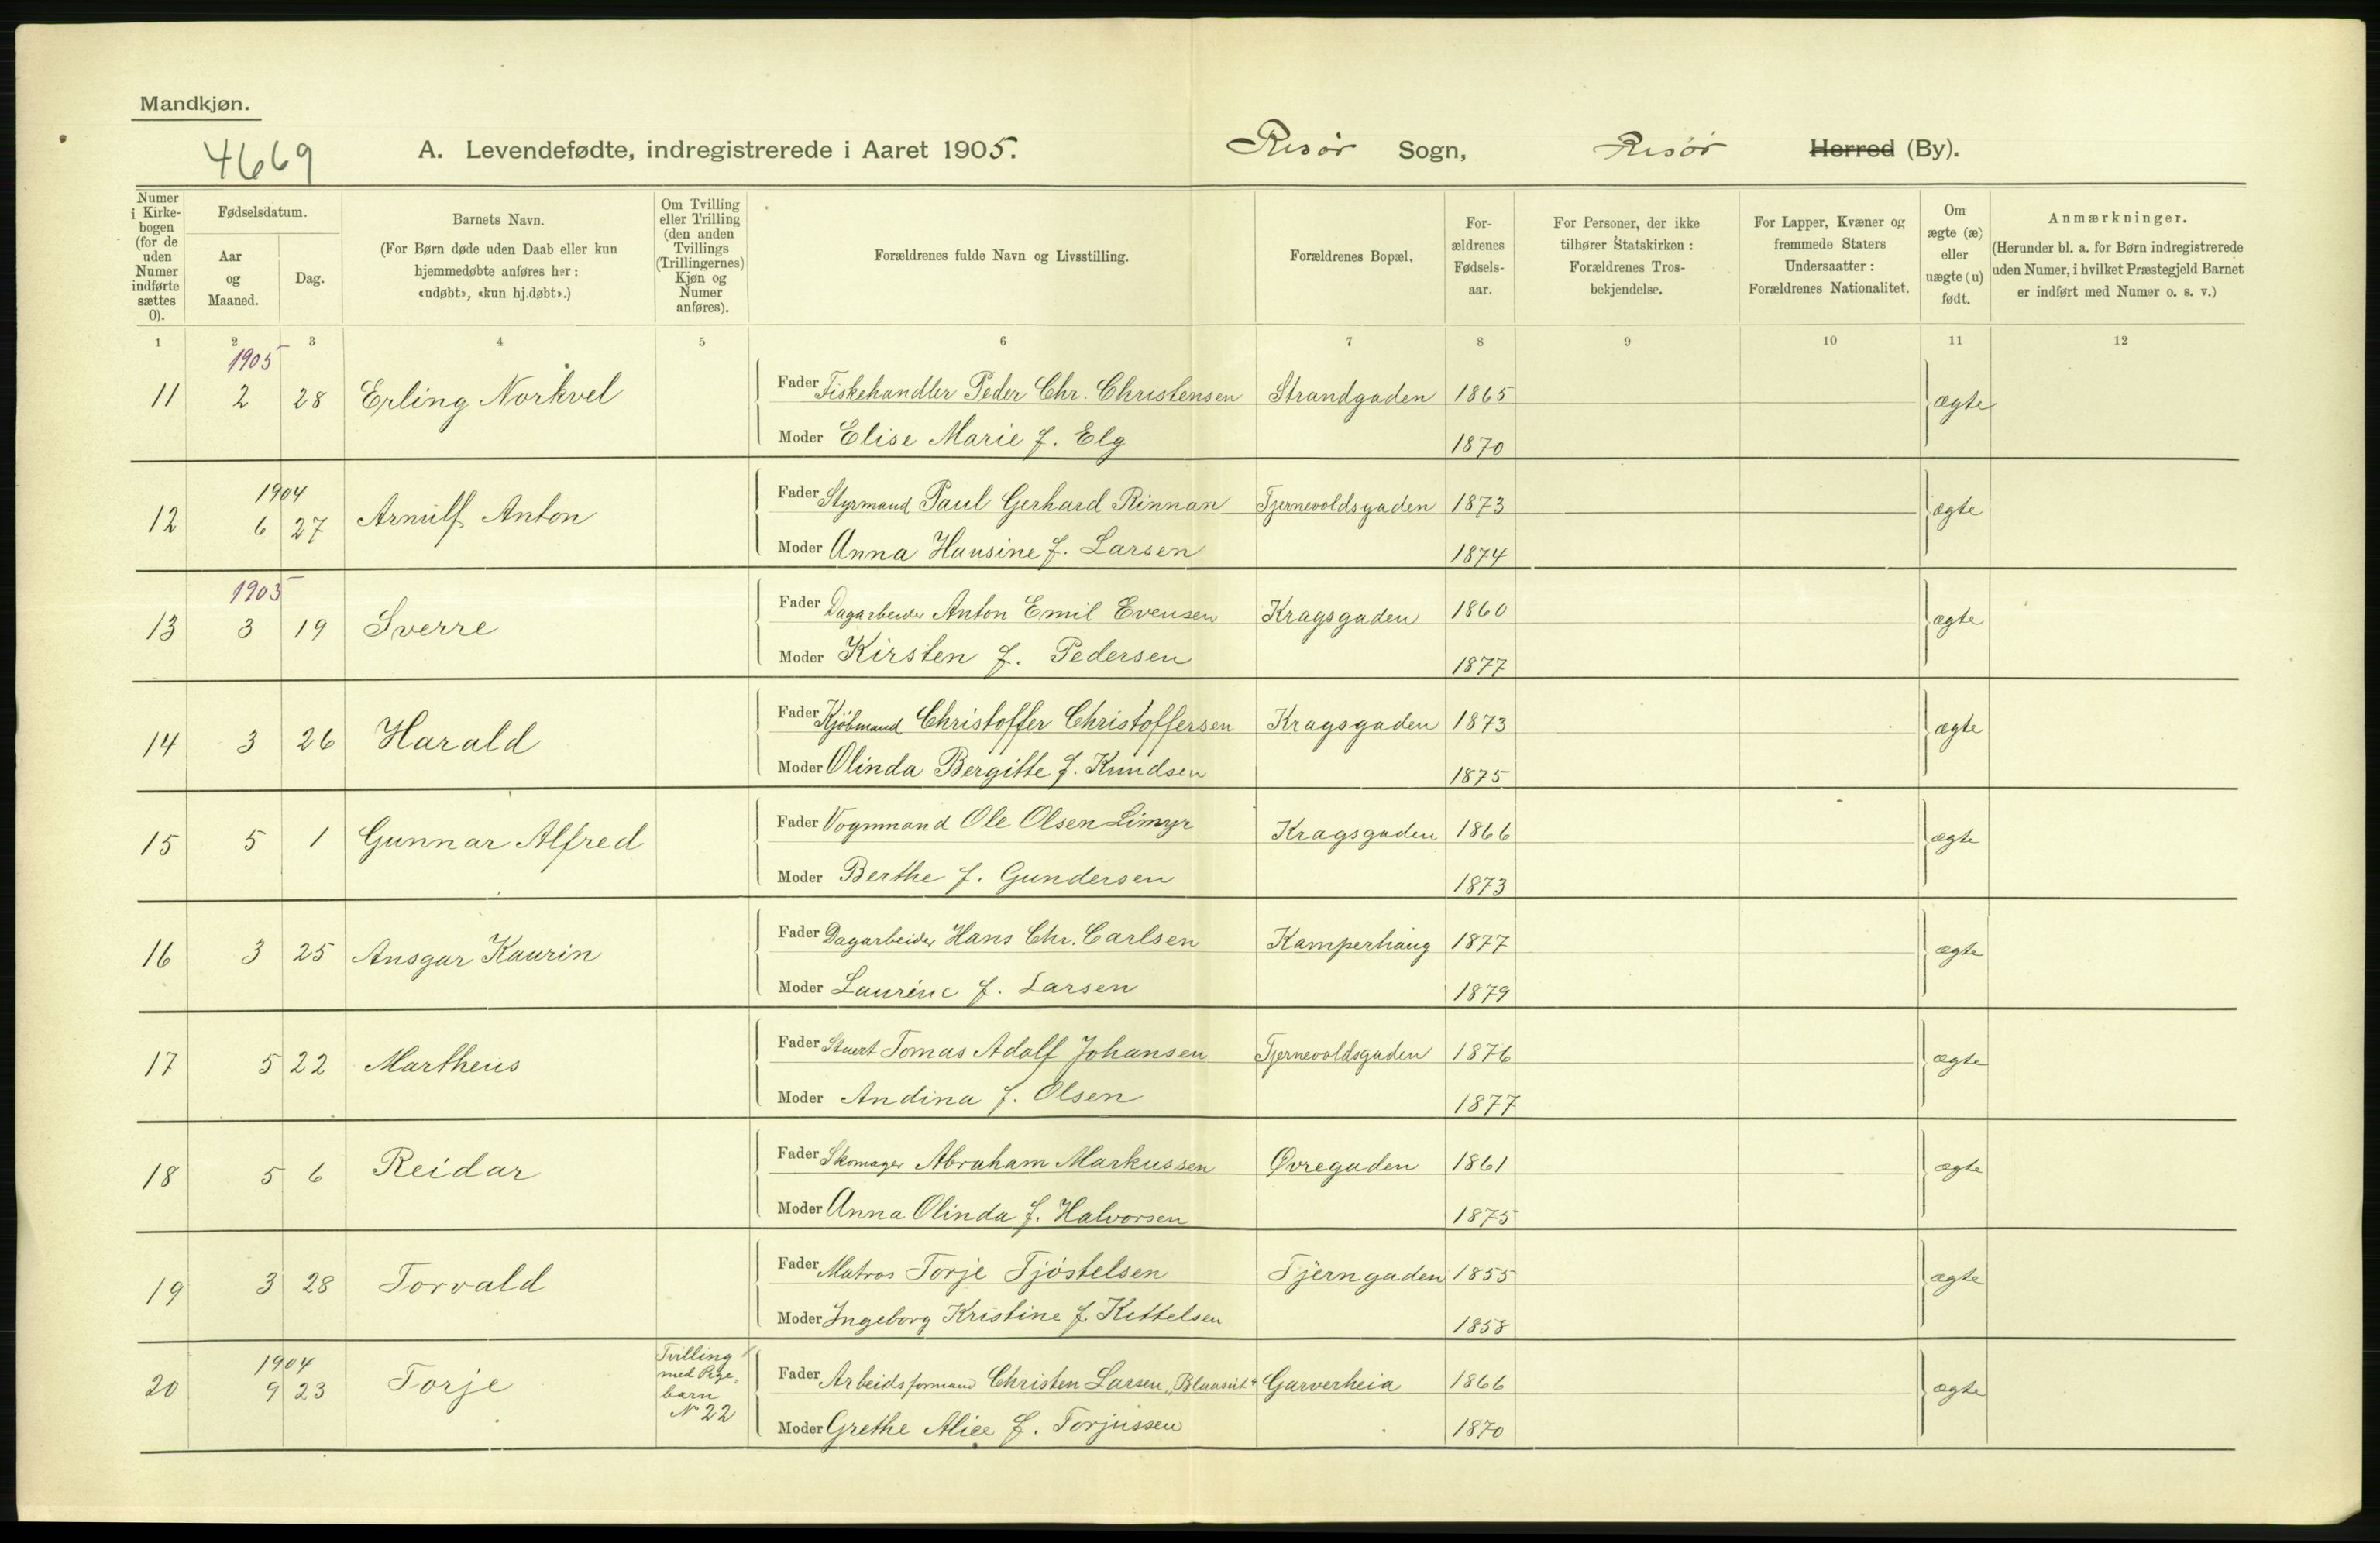 Mandkjøn.
4669
A. Levendefødte, indregistrerede i Aaret 1905. Risør Sogn, Risør Herred (By).
Numer i Kirkebogen (for de uden Numer indførte sættes 0).
Fødselsdatum.
Aar og Maaned.
Dag.
Barnets Navn.
(For Børn døde uden Daab eller kun hjemmedøbte anføres her: «udøbt», «kun hj.døbt».)
Om Tvilling eller Trilling (den anden Tvillings (Trillingernes) Kjøn og Numer anføres).
Forældrenes fulde Navn og Livsstilling.
Forældrenes Bopæl,
For-ældrenes Fødsels-aar.
For Personer, der ikke tilhører Statskirken: Forældrenes Tros-bekjendelse.
For Lapper, Kvæner og fremmede Staters Undersaatter: Forældrenes Nationalitet.
Om ægte (æ) eller uægte (u) født.
Anmærkninger.
(Herunder bl. a. for Børn indregistrerede uden Numer, i hvilket Præstegjeld Barnet er indført med Numer o. s. v.)
1 2 3 4 5 6 7 8 9 10 11 12
1905
11 2 28 Erling Norkvel Fader Fiskehandler Peder Chr. Christensen Strandgaden 1865 ægte
Moder Elise Marie f. Elg 1870
1904
12 6 27 Arnulf Anton Fader Styrmand Paul Gerhard Rinnan Tjernevoldsgaden 1873 ægte
Moder Anna Hansine f. Larsen 1874
1905
13 3 19 Sverre Fader Dagarbeider Anton Emil Evensen Kragsgaden 1860 ægte
Moder Kirsten f. Pedersen 1877
14 3 26 Harald Fader Kjøbmand Christoffer Christoffersen Kragsgaden 1873 ægte
Moder Olinda Bergitte f. Knudsen 1875
15 5 1 Gunnar Alfred Fader Vognmand Ole Olsen Limyr Kragsgaden 1866 ægte
Moder Berthe f. Gundersen 1873
16 3 25 Ansgar Kaurin Fader Dagarbeider Hans Chr. Carlsen Kamperhaug 1877 ægte
Moder Laurine f. Larsen 1879
17 5 22 Martheus Fader Stuert Tomas Adolf Johansen Tjernevoldsgaden 1876 ægte
Moder Andina f. Olsen 1877
18 5 6 Reidar Fader Skomager Abraham Markussen Øvregaden 1861 ægte
Moder Anna Olinda f. Halvorsen 1875
19 3 28 Torvald Fader Matros Torje Tjøstelsen Tjerngaden 1855 ægte
Moder Ingeborg Kristine f. Kittelsen 1858
1904
20 9 23 Torje Tvilling med Pige-barn N 22 Fader Arbeidsformand Christen Larsen Garverheia 1866 ægte
Moder Grethe Alice f. Torjussen 1870